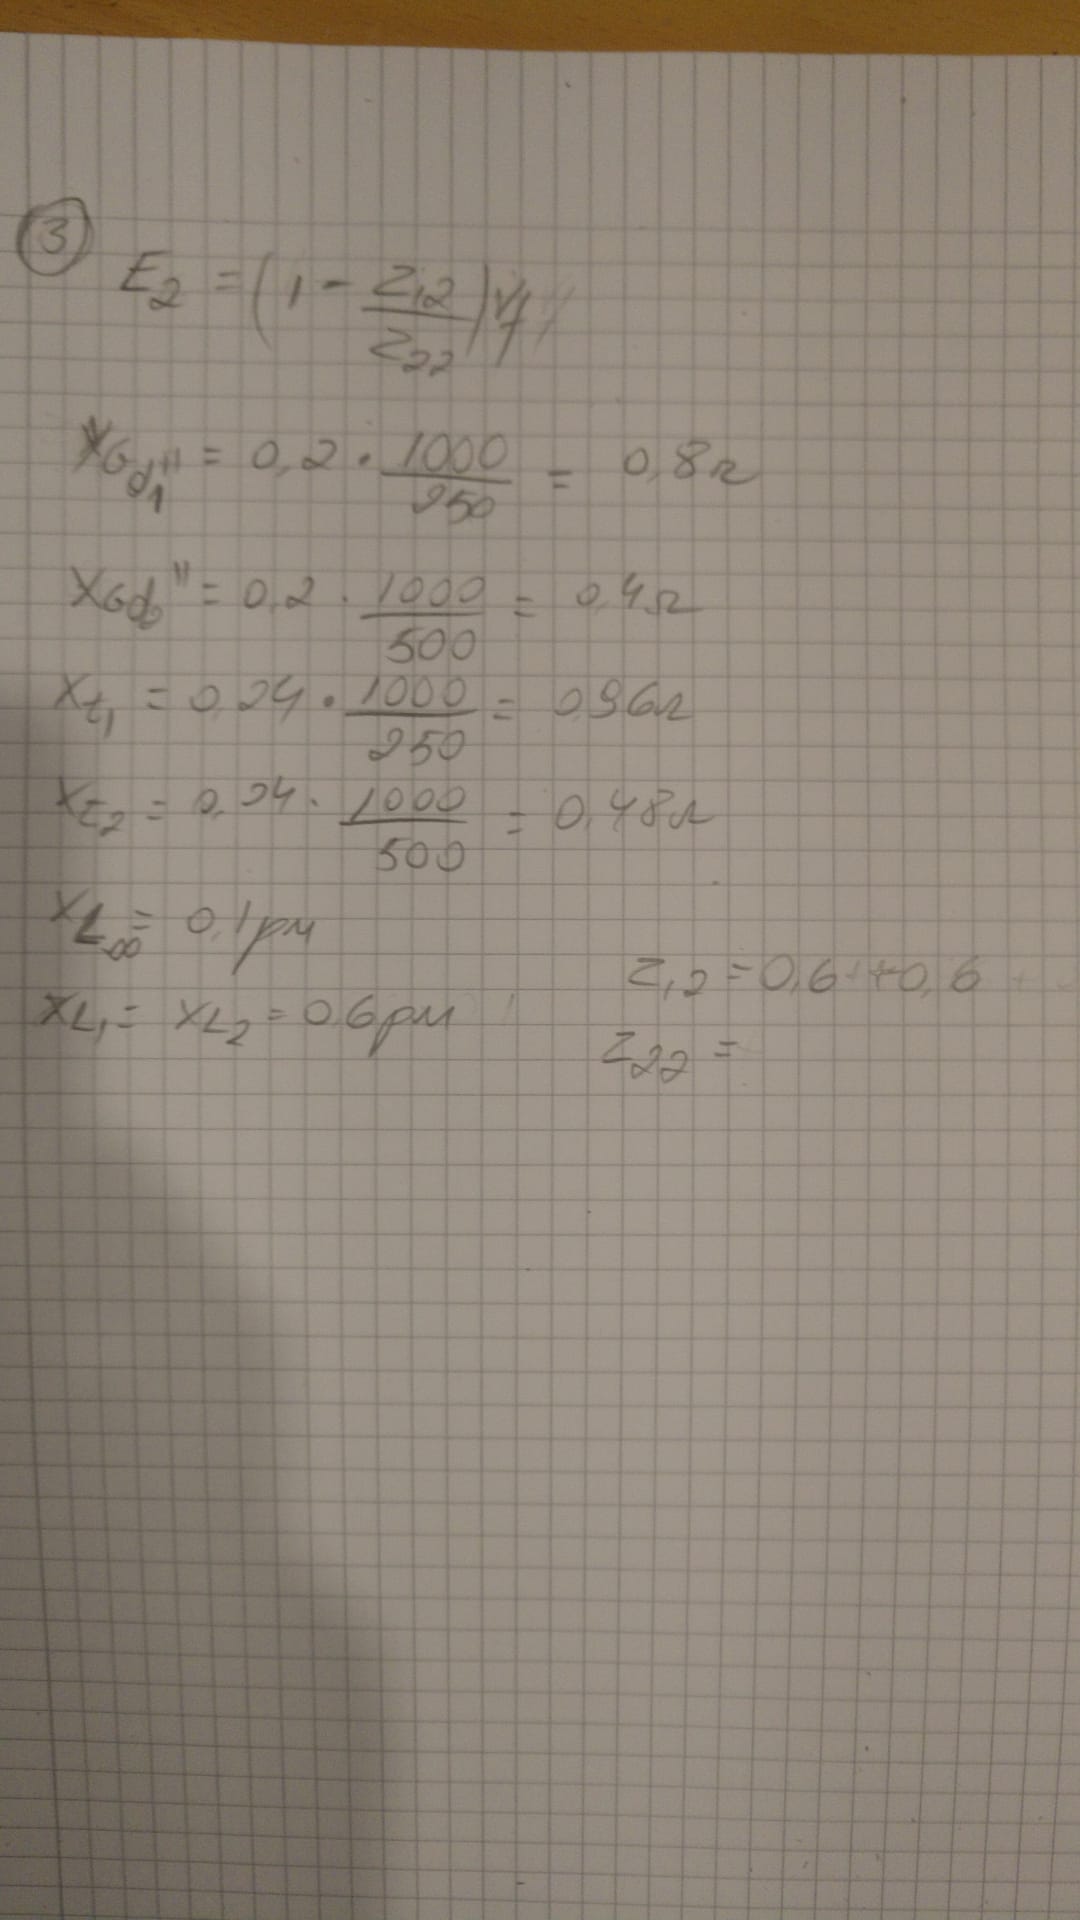 3
E₂ = (1 - Z₁₂/Z₂₂) V
X_Gd₁'' = 0,2 · 1000/250 = 0,8Ω
X_Gd'' = 0,2 · 1000/500 = 0,4Ω
X_t₁ = 0,24 · 1000/250 = 0,96Ω
X_t₂ = 0,24 · 1000/500 = 0,48Ω
X_L∞ = 0,1 pu
X_L₁ = X_L₂ = 0,6 pu
Z₁₂ = 0,6 + 0,6
Z₂₂ =